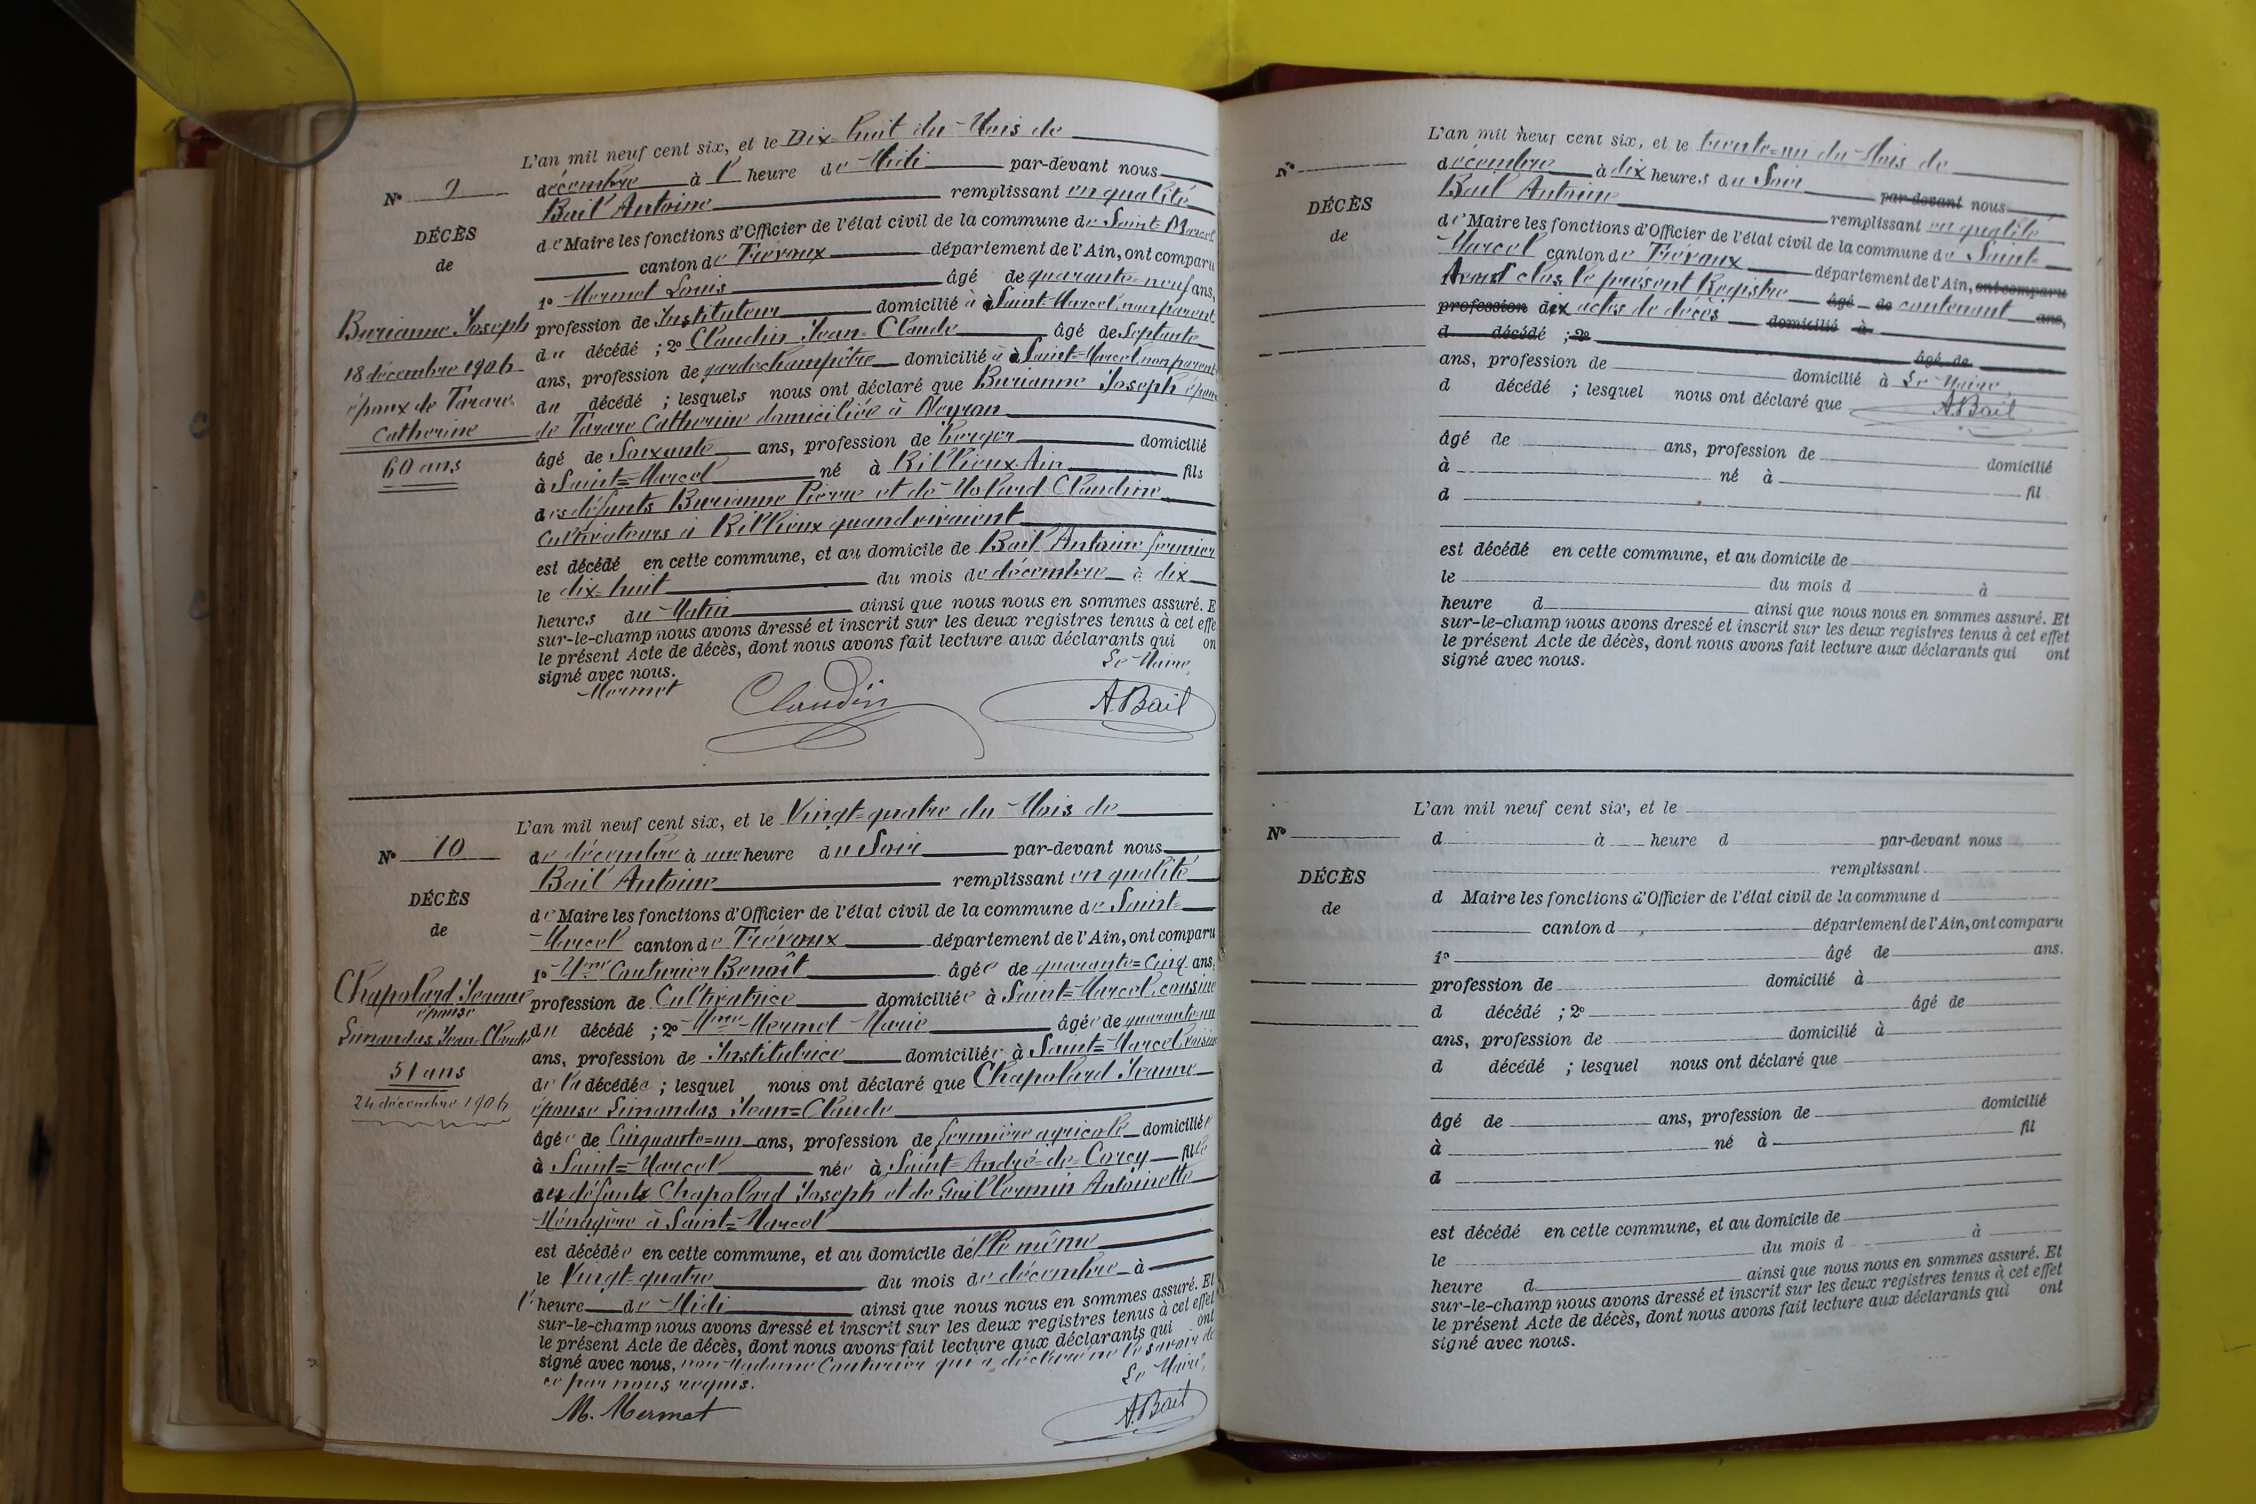 L'an mil neuf cent six, et le Dix-huit du Mois de
N° 9
décembre à l' heure de Midi par-devant nous
Bail Antoine remplissant en qualité
DÉCÈS
de Maire les fonctions d'Officier de l'état civil de la commune de Saint-Marcel
de
canton de Trévoux département de l'Ain, ont comparu
1° Mermet Louis âgé de quarante-neuf ans,
Burianne Joseph
profession de Instituteur domicilié à Saint-Marcel, non parent
du décédé ; 2° Claudin Jean-Claude âgé de Septante
18 décembre 1906
ans, profession de garde champêtre domicilié à Saint-Marcel, non parent
époux de Tarare
du décédé ; lesquels nous ont déclaré que Burianne Joseph époux
Catherine
de Tarare Catherine domiciliée à Neyron
60 ans
âgé de Soixante ans, profession de berger domicilié
à Saint=Marcel né à Rillieux Ain fils
des défunts Burianne Pierre et de Claudine
Cultivateurs à Rillieux quand vivaient
est décédé en cette commune, et au domicile de Bail Antoine fermier
le dix-huit du mois de décembre à dix
heures du Matin ainsi que nous nous en sommes assuré. E
sur-le-champ nous avons dressé et inscrit sur les deux registres tenus à cet effe
le présent Acte de décès, dont nous avons fait lecture aux déclarants qui on
signé avec nous.
Le Maire,
Mermet Claudin A. Bail
L'an mil neuf cent six, et le Vingt-quatre du Mois de
N° 10
de décembre à une heure du Soir par-devant nous
Bail Antoine remplissant en qualité
DÉCÈS
de Maire les fonctions d'Officier de l'état civil de la commune de Saint-
de
Marcel canton de Trévoux département de l'Ain, ont comparu
1° Mme Couturier Benoît âgée de quarante=Cinq ans,
Chapolard Jeanne
profession de Cultivatrice domiciliée à Saint=Marcel, cousine
épouse
du décédé ; 2° Mme Mermet Marie âgée de quarante-un
Simandas Jean-Claude
ans, profession de Institutrice domiciliée à Saint=Marcel, voisine
51 ans
de la décédée ; lesquel nous ont déclaré que Chapolard Jeanne
24 décembre 1906
épouse Simandas Jean=Claude
âgée de Cinquante=un ans, profession de fermière agricole domiciliée
à Saint=Marcel née à Saint-André-de-Corcy fille
des défunts Chapolard Joseph et de Guillermin Antoinette
Ménagère à Saint=Marcel
est décédée en cette commune, et au domicile d'elle même
le Vingt-quatre du mois de décembre à
l'heure de Midi ainsi que nous nous en sommes assuré. Et
sur-le-champ nous avons dressé et inscrit sur les deux registres tenus à cet effet
le présent Acte de décès, dont nous avons fait lecture aux déclarants qui ont
signé avec nous, non Madame Couturier qui a déclaré ne le savoir de
ce par nous requis.
Le Maire,
M. Mermet A. Bail
L'an mil neuf cent six, et le trente=un du Mois de
N°
décembre à dix heures du Soir par-devant nous
Bail Antoine remplissant en qualité
DÉCÈS
de Maire les fonctions d'Officier de l'état civil de la commune de Saint-
de
Marcel canton de Trévoux département de l'Ain, ont comparu
Avons clos le présent Registre âgé de contenant ans,
profession dix actes de décès domicilié à
d décédé ; 2° âgé de
ans, profession de domicilié à Le Maire,
d décédé ; lesquel nous ont déclaré que A. Bail
âgé de ans, profession de domicilié
à né à fil
d
est décédé en cette commune, et au domicile de
le du mois d à
heure d ainsi que nous nous en sommes assuré. Et
sur-le-champ nous avons dressé et inscrit sur les deux registres tenus à cet effet
le présent Acte de décès, dont nous avons fait lecture aux déclarants qui ont
signé avec nous.
L'an mil neuf cent six, et le
N°
d à heure d par-devant nous
remplissant
DÉCÈS
d Maire les fonctions d'Officier de l'état civil de la commune d
de
canton d département de l'Ain, ont comparu
1° âgé de ans.
profession de domicilié à
d décédé ; 2° âgé de
ans, profession de domicilié à
d décédé ; lesquel nous ont déclaré que
âgé de ans, profession de domicilié
à né à fil
d
est décédé en cette commune, et au domicile de
le du mois d à
heure d ainsi que nous nous en sommes assuré. Et
sur-le-champ nous avons dressé et inscrit sur les deux registres tenus à cet effet
le présent Acte de décès, dont nous avons fait lecture aux déclarants qui ont
signé avec nous.